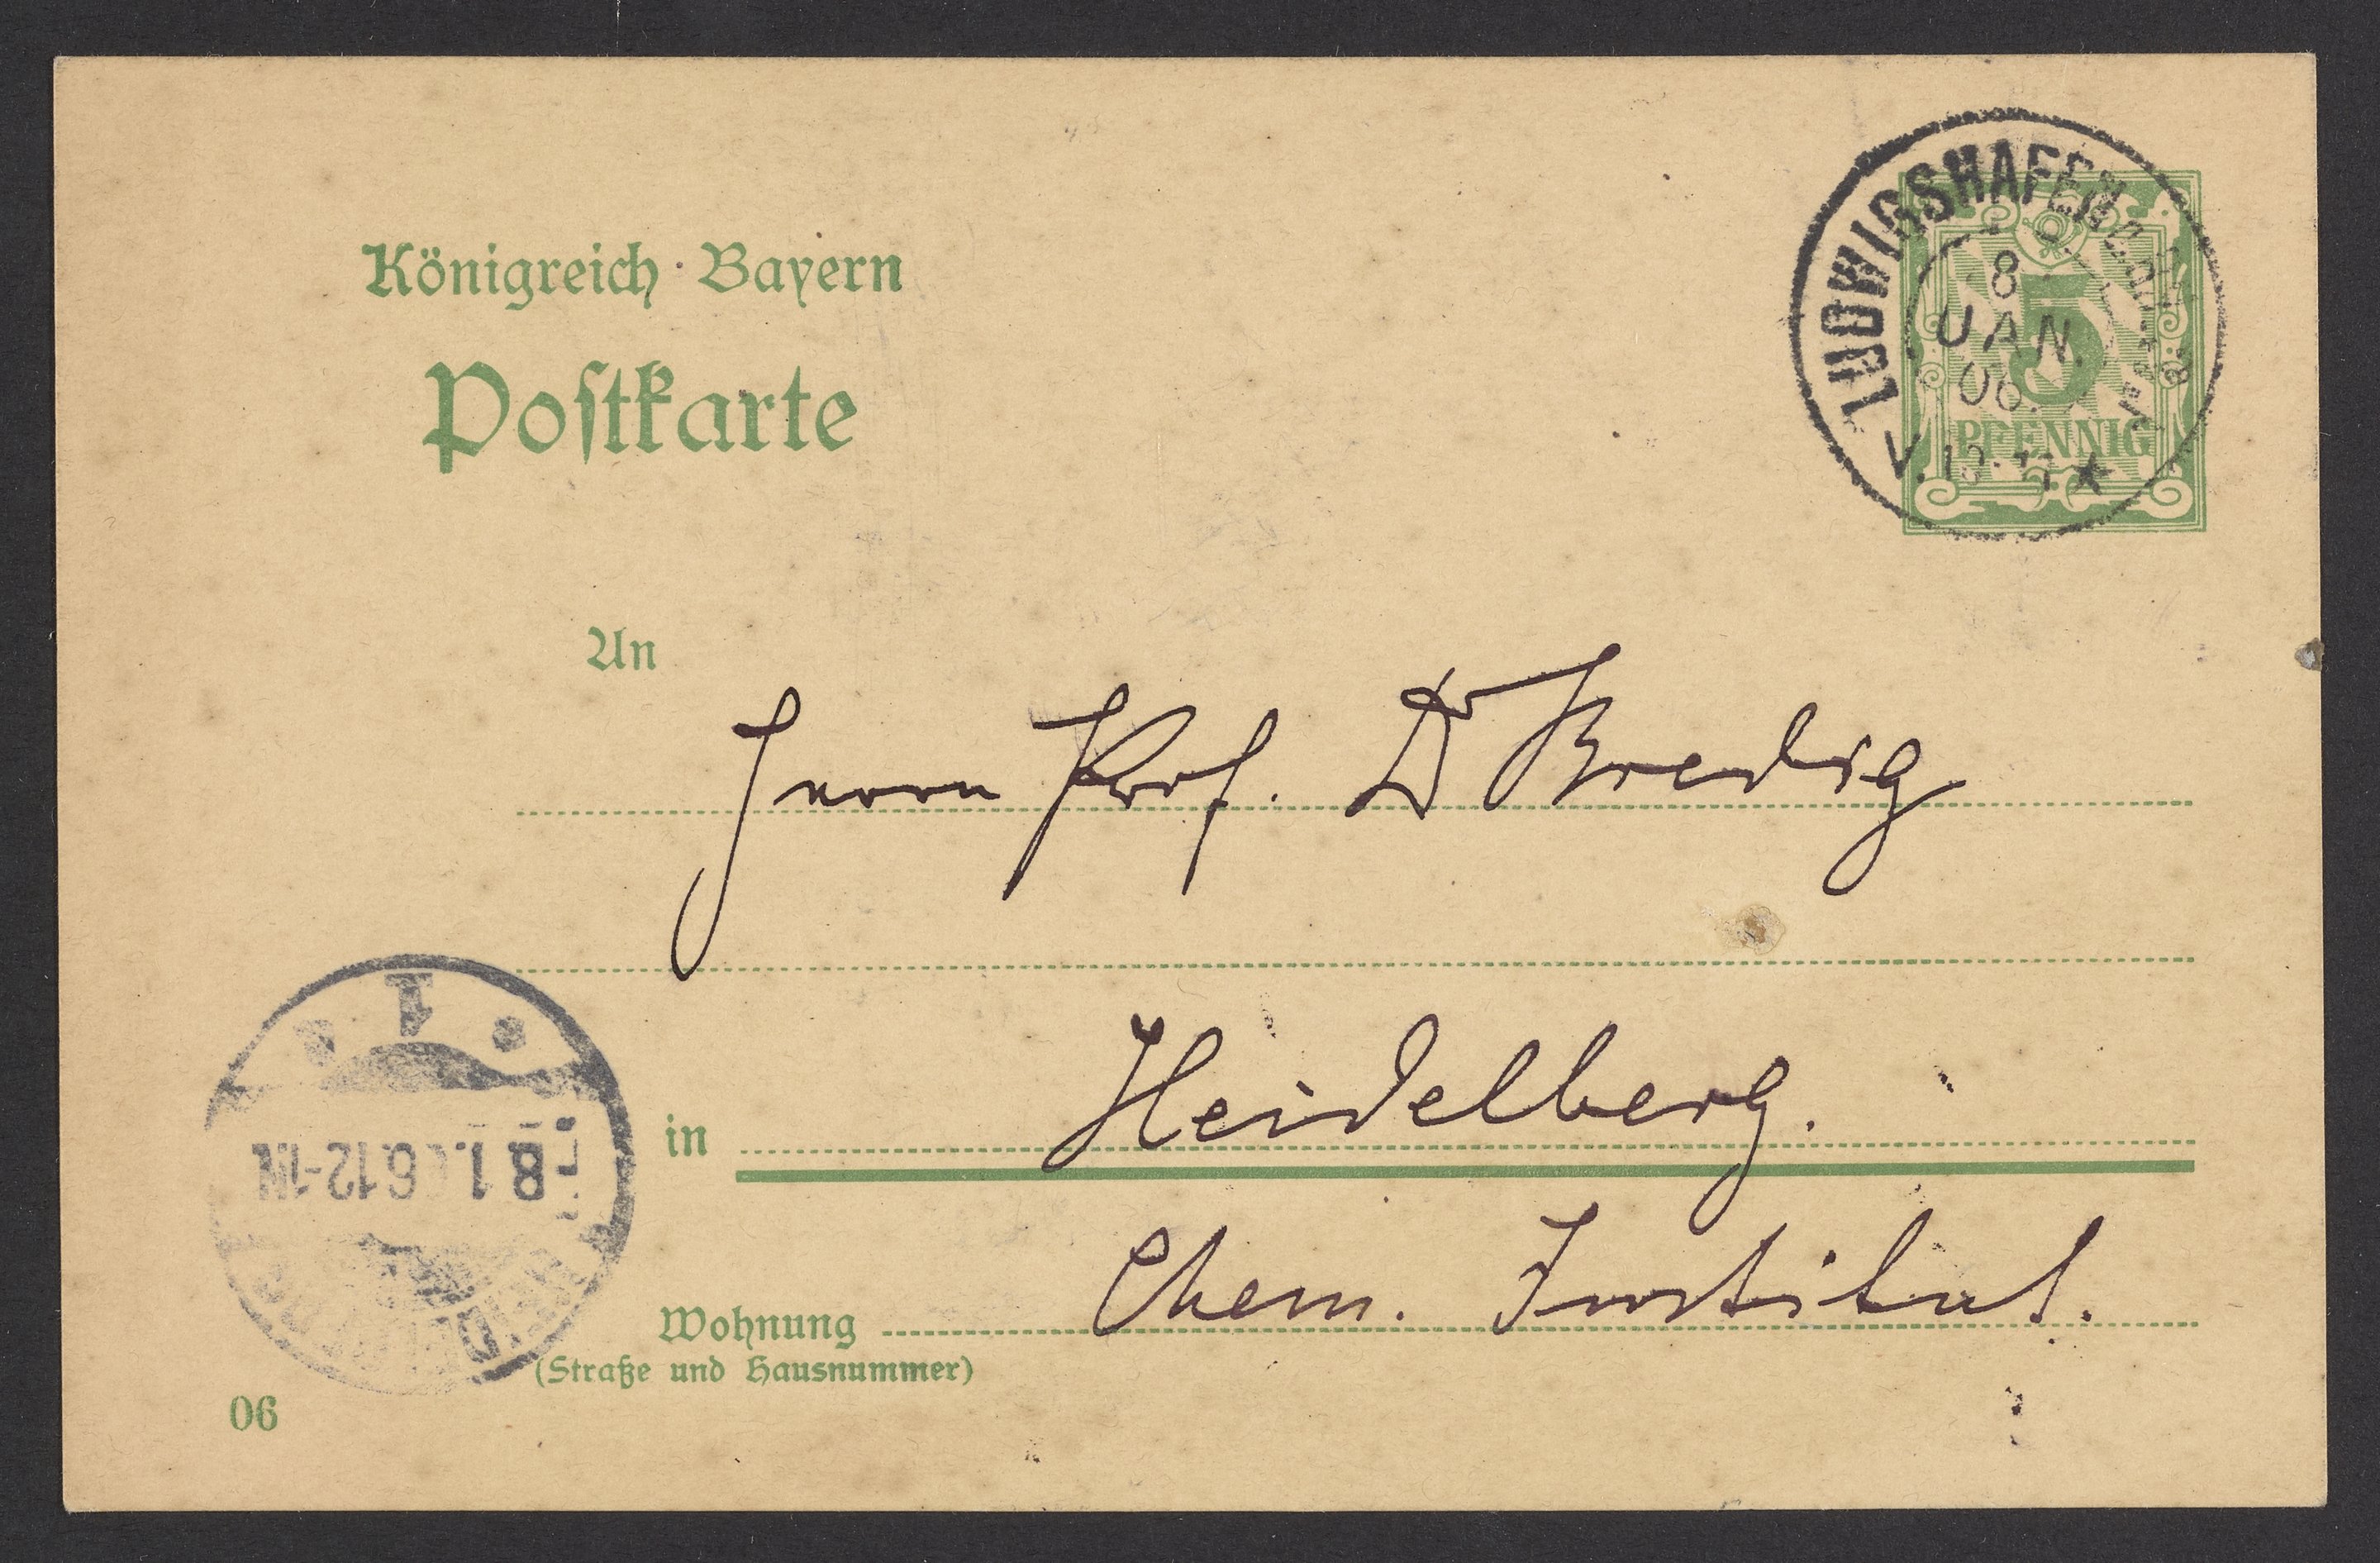 Königreich Bayern
Postkarte
LUDWIGSHAFEN
8
JAN.
06.
V.
5
PFENNIG
An
Herrn Prof. Dr Bredig
in Heidelberg.
Wohnung Chem. Institut.
(Straße und Hausnummer)
1
8 1. 6.12-1N
06